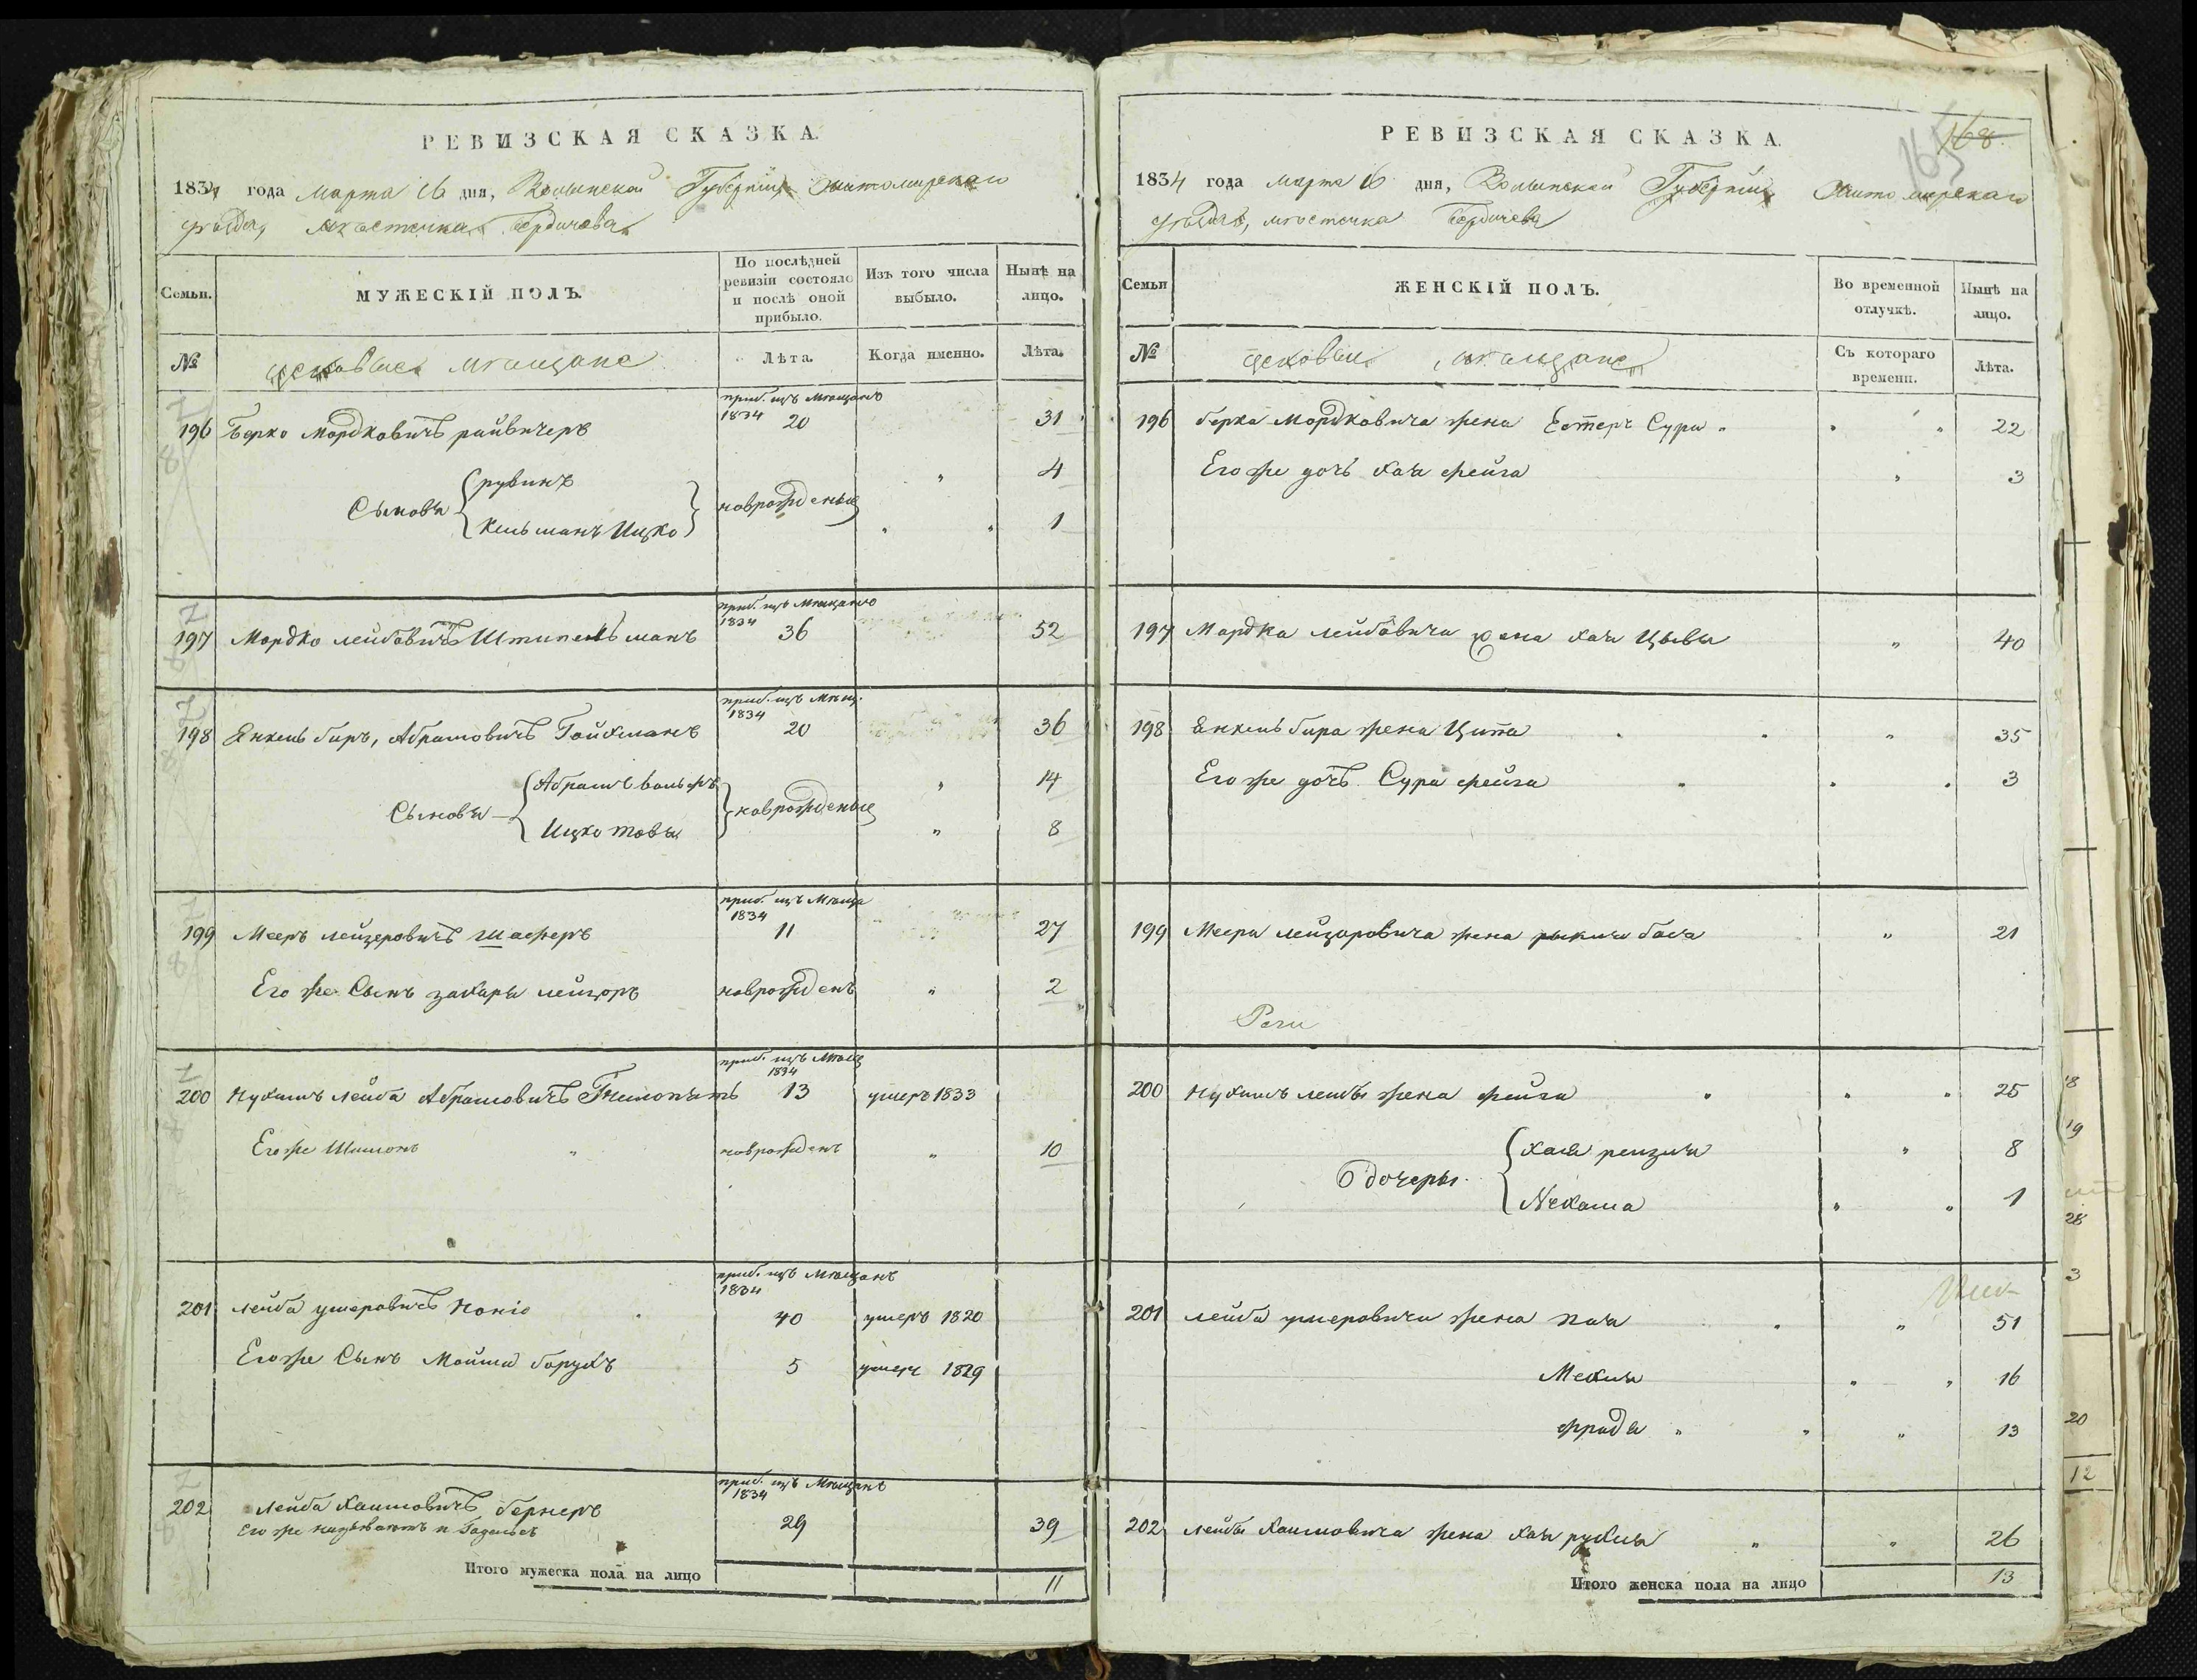 РЕВИЗСКАЯ СКАЗКА.
1834 года марта 16 дня, Волынской Губерніи, Житомирскаго
уѣзда, мѣстечка Бердичева
Семьи.
МУЖЕСКІЙ ПОЛЪ.
По послѣдней ревизіи состояло и послѣ оной прибыло.
Изъ того числа выбыло.
Нынѣ на лицо.
№
цеховые мѣщане
Лѣта.
Когда именно.
Лѣта.
приб. изъ мѣщанъ
196 Берко Мордковичъ райвичеръ 1834 20 31
Сыновья
рувинъ 4
новрожденые
Кельманъ Ицко 1
приб. изъ мѣщанъ
197 Мордко лейбовичъ Штипельманъ 1834 36 52
приб. изъ мѣщ.
198 Янкель биръ, Абрамовичъ Гойхманъ 1834 20 36
Абрамъ вольфъ 14
Сыновья новрожденые
Ицко товья 8
приб. изъ мѣща
199 Мееръ лейзеровичъ шаферъ 1834 11 27
Его же Сынъ захарья лейзоръ новрожденъ 2
приб. изъ мѣщ
1834
200 Нухимъ лейба Абрамовичъ Гнилопять 13 умеръ 1833
Его же Шимонъ новрожденъ 10
приб. изъ мѣщанъ
1834
201 лейба ушеровичъ 40 умеръ 1820
Его же Сынъ Мойша борухъ 5 умеръ 1829
приб. изъ мѣщанъ
202 лейба хаимовичъ бернеръ 1834
Его же называютъ и 29 39
Итого мужеска пола на лицо 11
РЕВИЗСКАЯ СКАЗКА.
168
165
1834 года марта 16 дня, Волынской Губерніи Житомирскаго
уѣзда, мѣстечка Бердичева
Семьи
ЖЕНСКІЙ ПОЛЪ.
Во временной отлучкѣ.
Нынѣ на лицо.
№
цеховые мѣщане
Съ котораго времени.
Лѣта.
196 берка Мордковича жена Естеръ Сура 22
Его же дочь хая фейга 3
197 Мордка лейбовича жена хая Цывья 40
198 Янкель бира жена Цита 35
Его же дочь Сура фейга 3
199 Меера лейзоровича жена рыкля бася 21
200 Нухимъ лейбы жена фейга 25
хая рейзля 8
дочеры
Нехама 1
201 лейба ушеровича жена хая 51
Мехля 16
фрада 13
202 лейбы хаимовича жена хая рухля 26
Итого женска пола на лицо 13